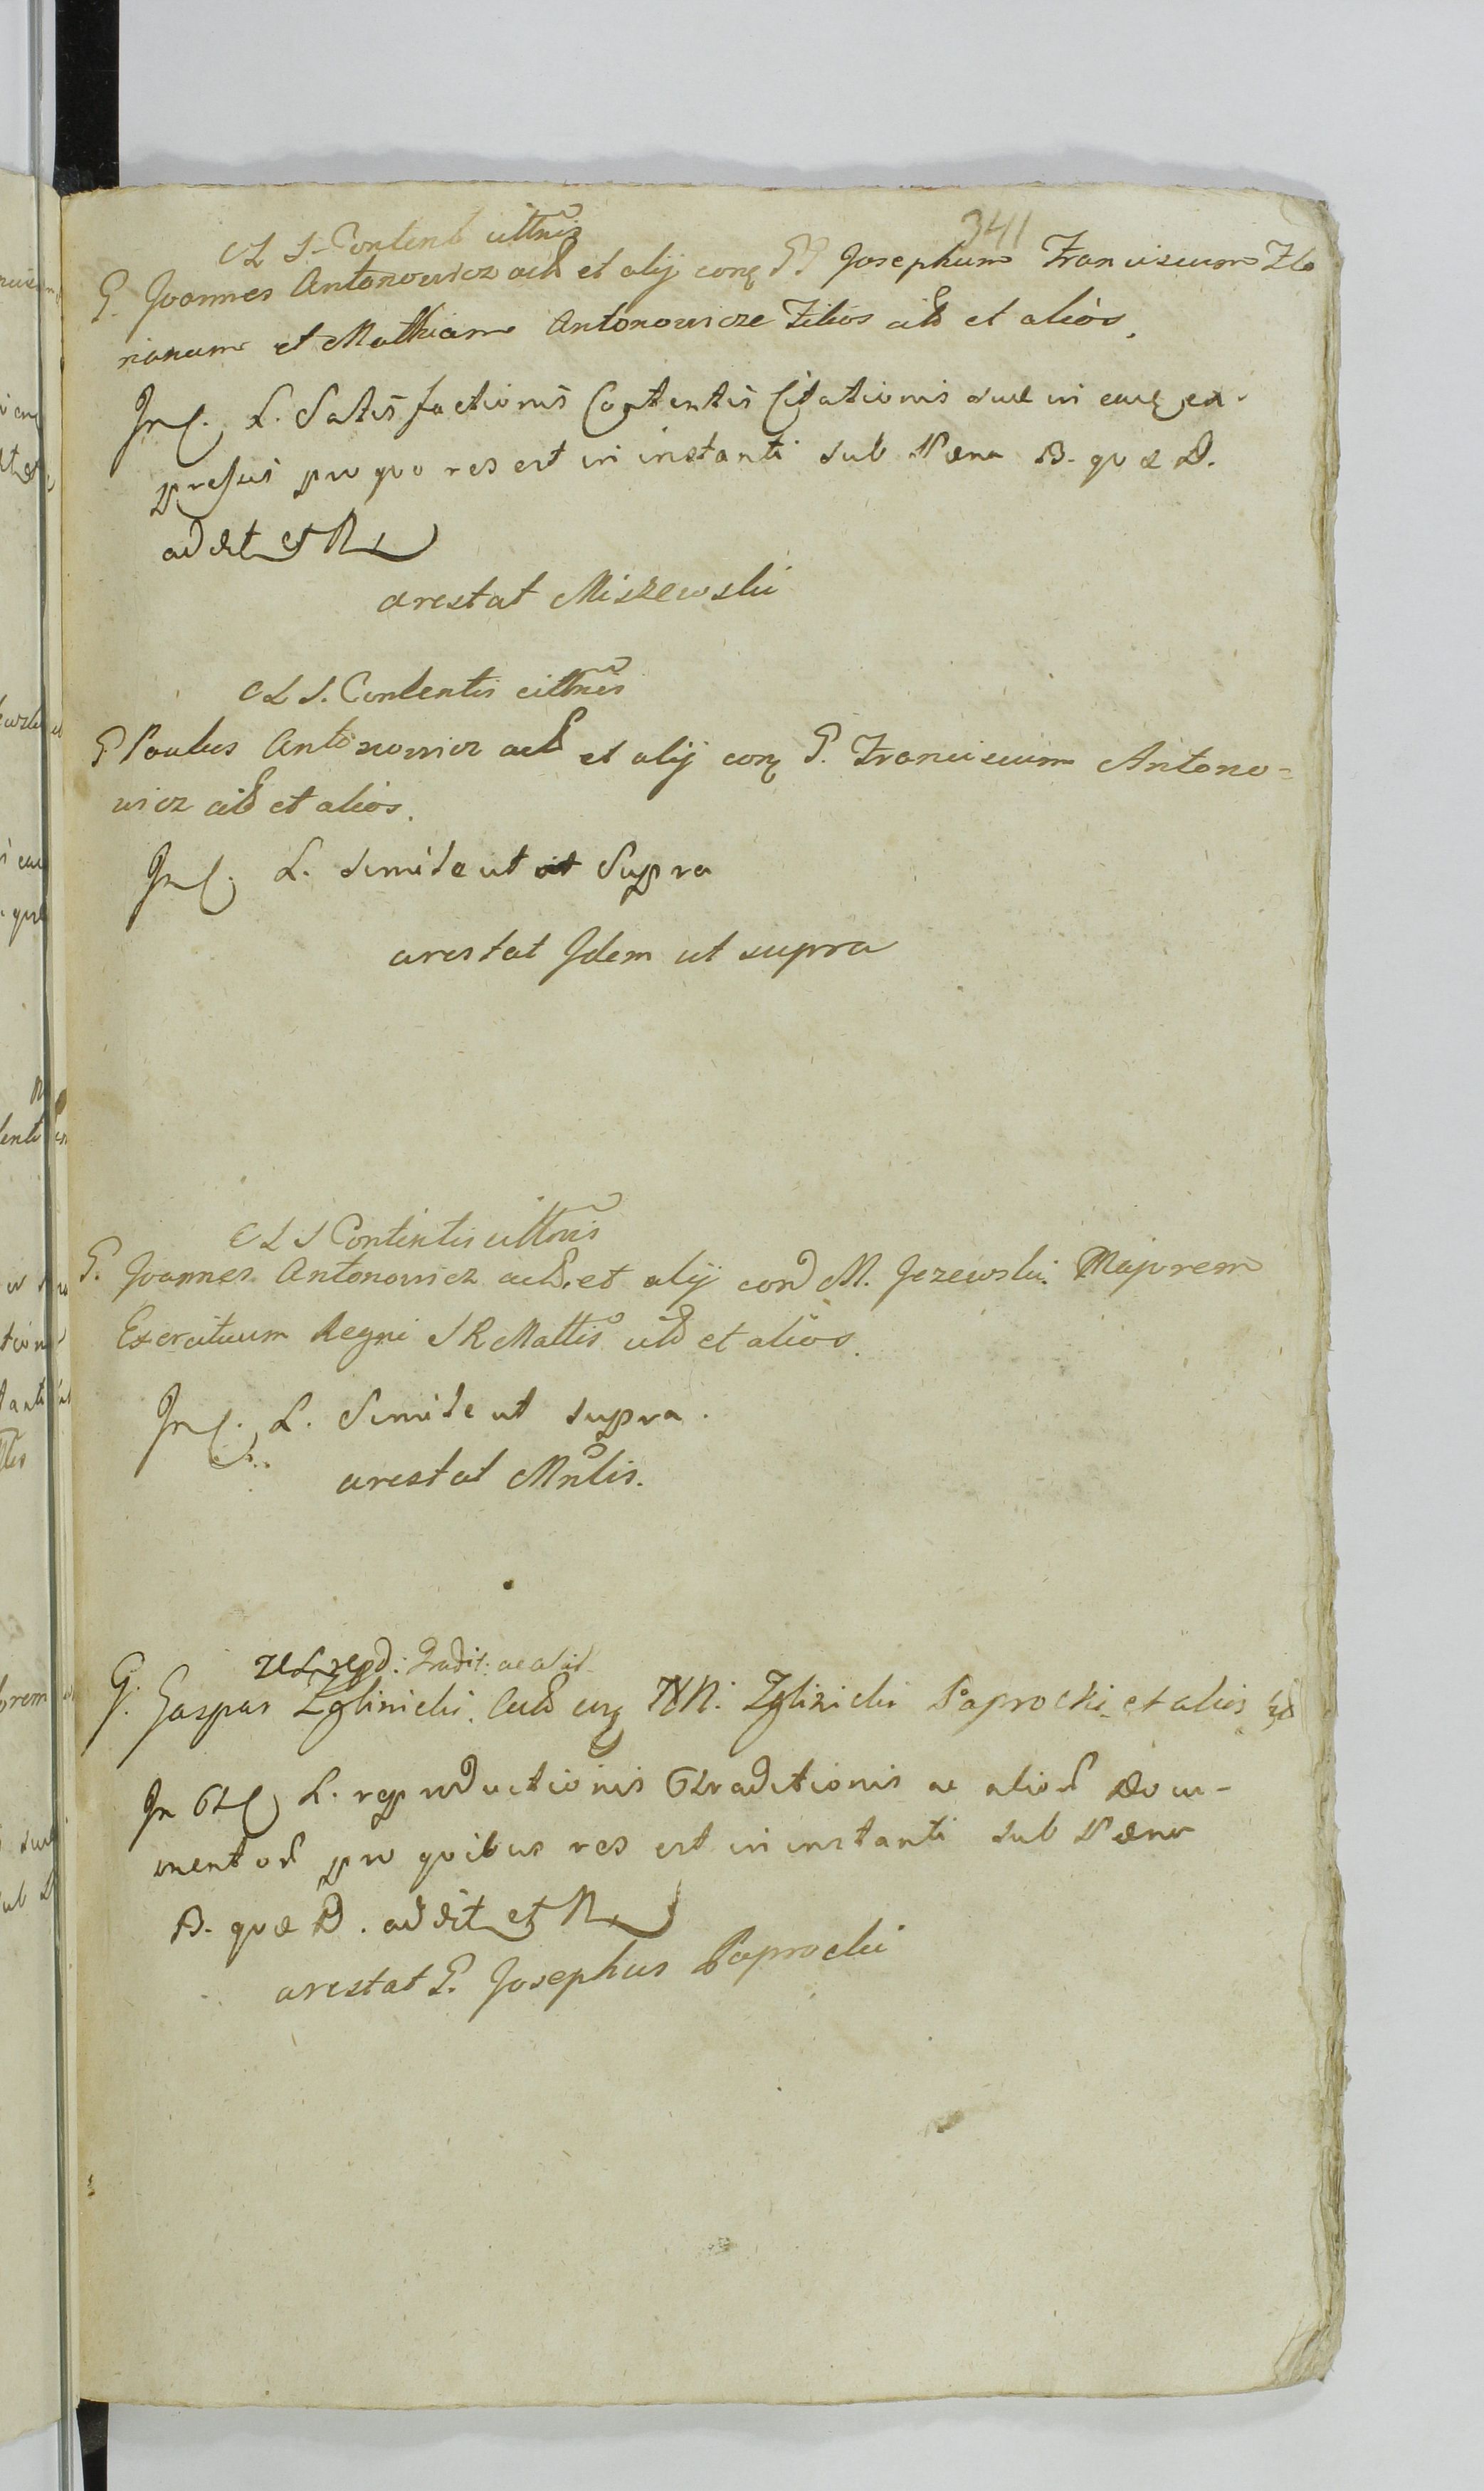 341
C L S. Content cittnis
G. Joannes Antonowicz actd et alij conq GG Josephum Franciscum Flo
rianum et Mathiam Antonowicze Filios citd et alios.
In C. L. Satisfactionis Contentis Citationis suae in eaq ex-
pressis pro quo res est in instanti sub Paena B. quae D.
addit et R
arestat Miszewski
C L S. Contentis cittnis
G. Paulus Antonowicz actd et alij conq G. Franciscum Antono=
wicz citd et alios.
In C. L. Simile ut Supra
arestat Idem ut supra
C L S Contentis cittnis
G. Joannes Antonowicz actd. et alij con M. Jezewski Majorem
Exercituum Regni S R Mattis citd et alios.
In C. L. Simile ut supra.
arestat Mnlis.
repd: Tradit: ac alid
G. Gaspar Zglinicki Actd NN. Zglinicki Paprocki et alios
In C L. reproductionis Extraditionis ac aliod Docu-
mentod pro quibus res est in instanti sub Paena
B. quae D. addit et R
arestat G. Josephus Paprocki